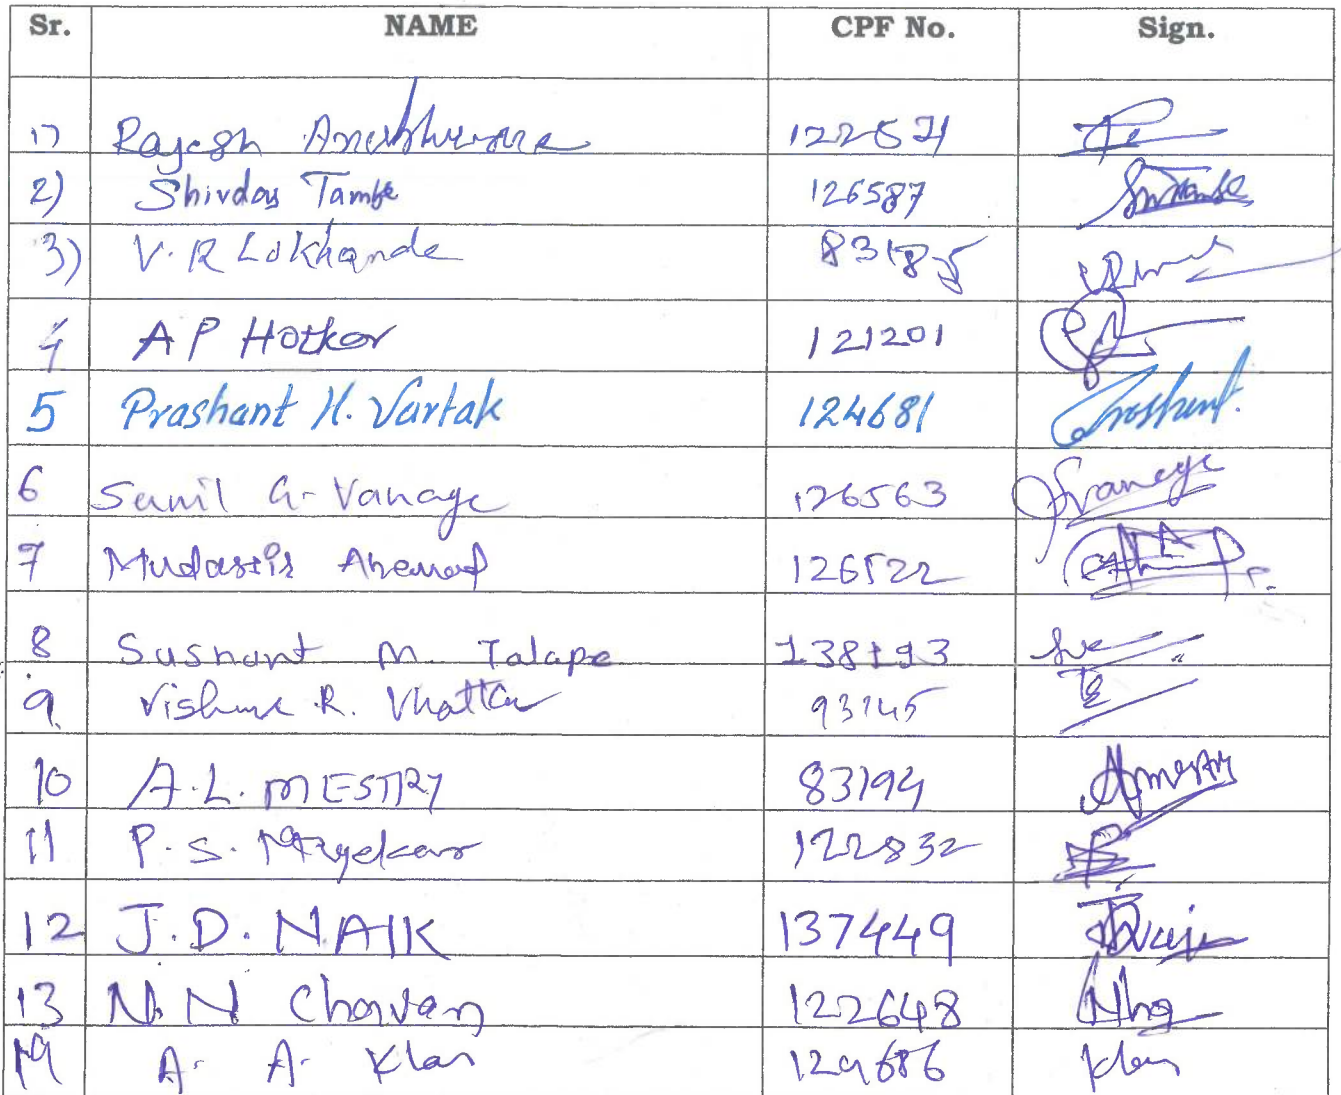 Sr. NAME CPF No. Sign.
1) Rajesh 122571
2) Shivdas Tambe 126587 Tambe
3) V.R Lokhande 83185
4 A P Hotkar 121201
5 Prashant H. Vartak 124681 Prashant.
6 Sunil G. Vanage 126563 Vanage
7 Mudassir Ahemad 126522
8 Sushant M. Talape 138193
9. Vishnu R. Vhatkar 93745
10 A.L. MESTRY 83194 Amestry
11 P.S. Mayekar 122832
12 J.D. NAIK 137449
13 N.N Chavan 122648
14 A. A. Khan 129686 Khan